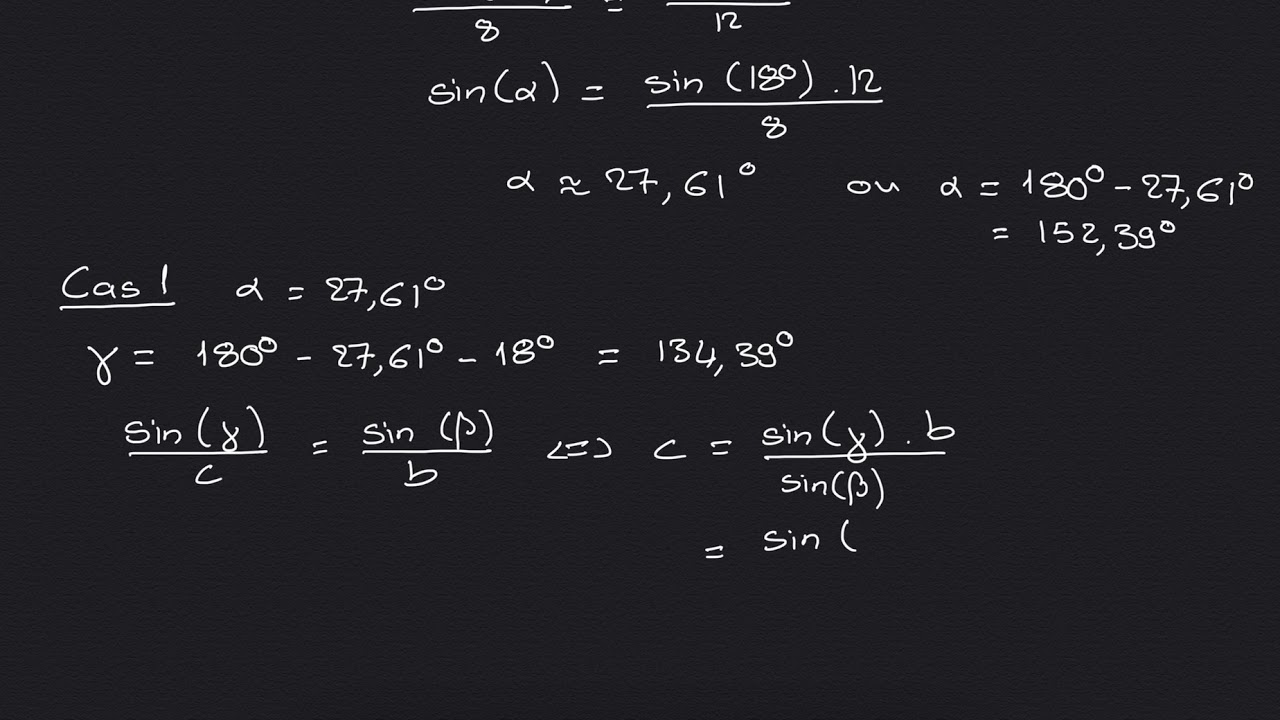 8 = 12
sin(α) = sin (18°) . 12 / 8
α ≈ 27,61° ou α = 180° - 27,61°
= 152,39°
Cas 1 α = 27,61°
γ = 180° - 27,61° - 18° = 134,39°
sin(γ) / c = sin(β) / b <=> c = sin(γ) . b / sin(β)
= sin (